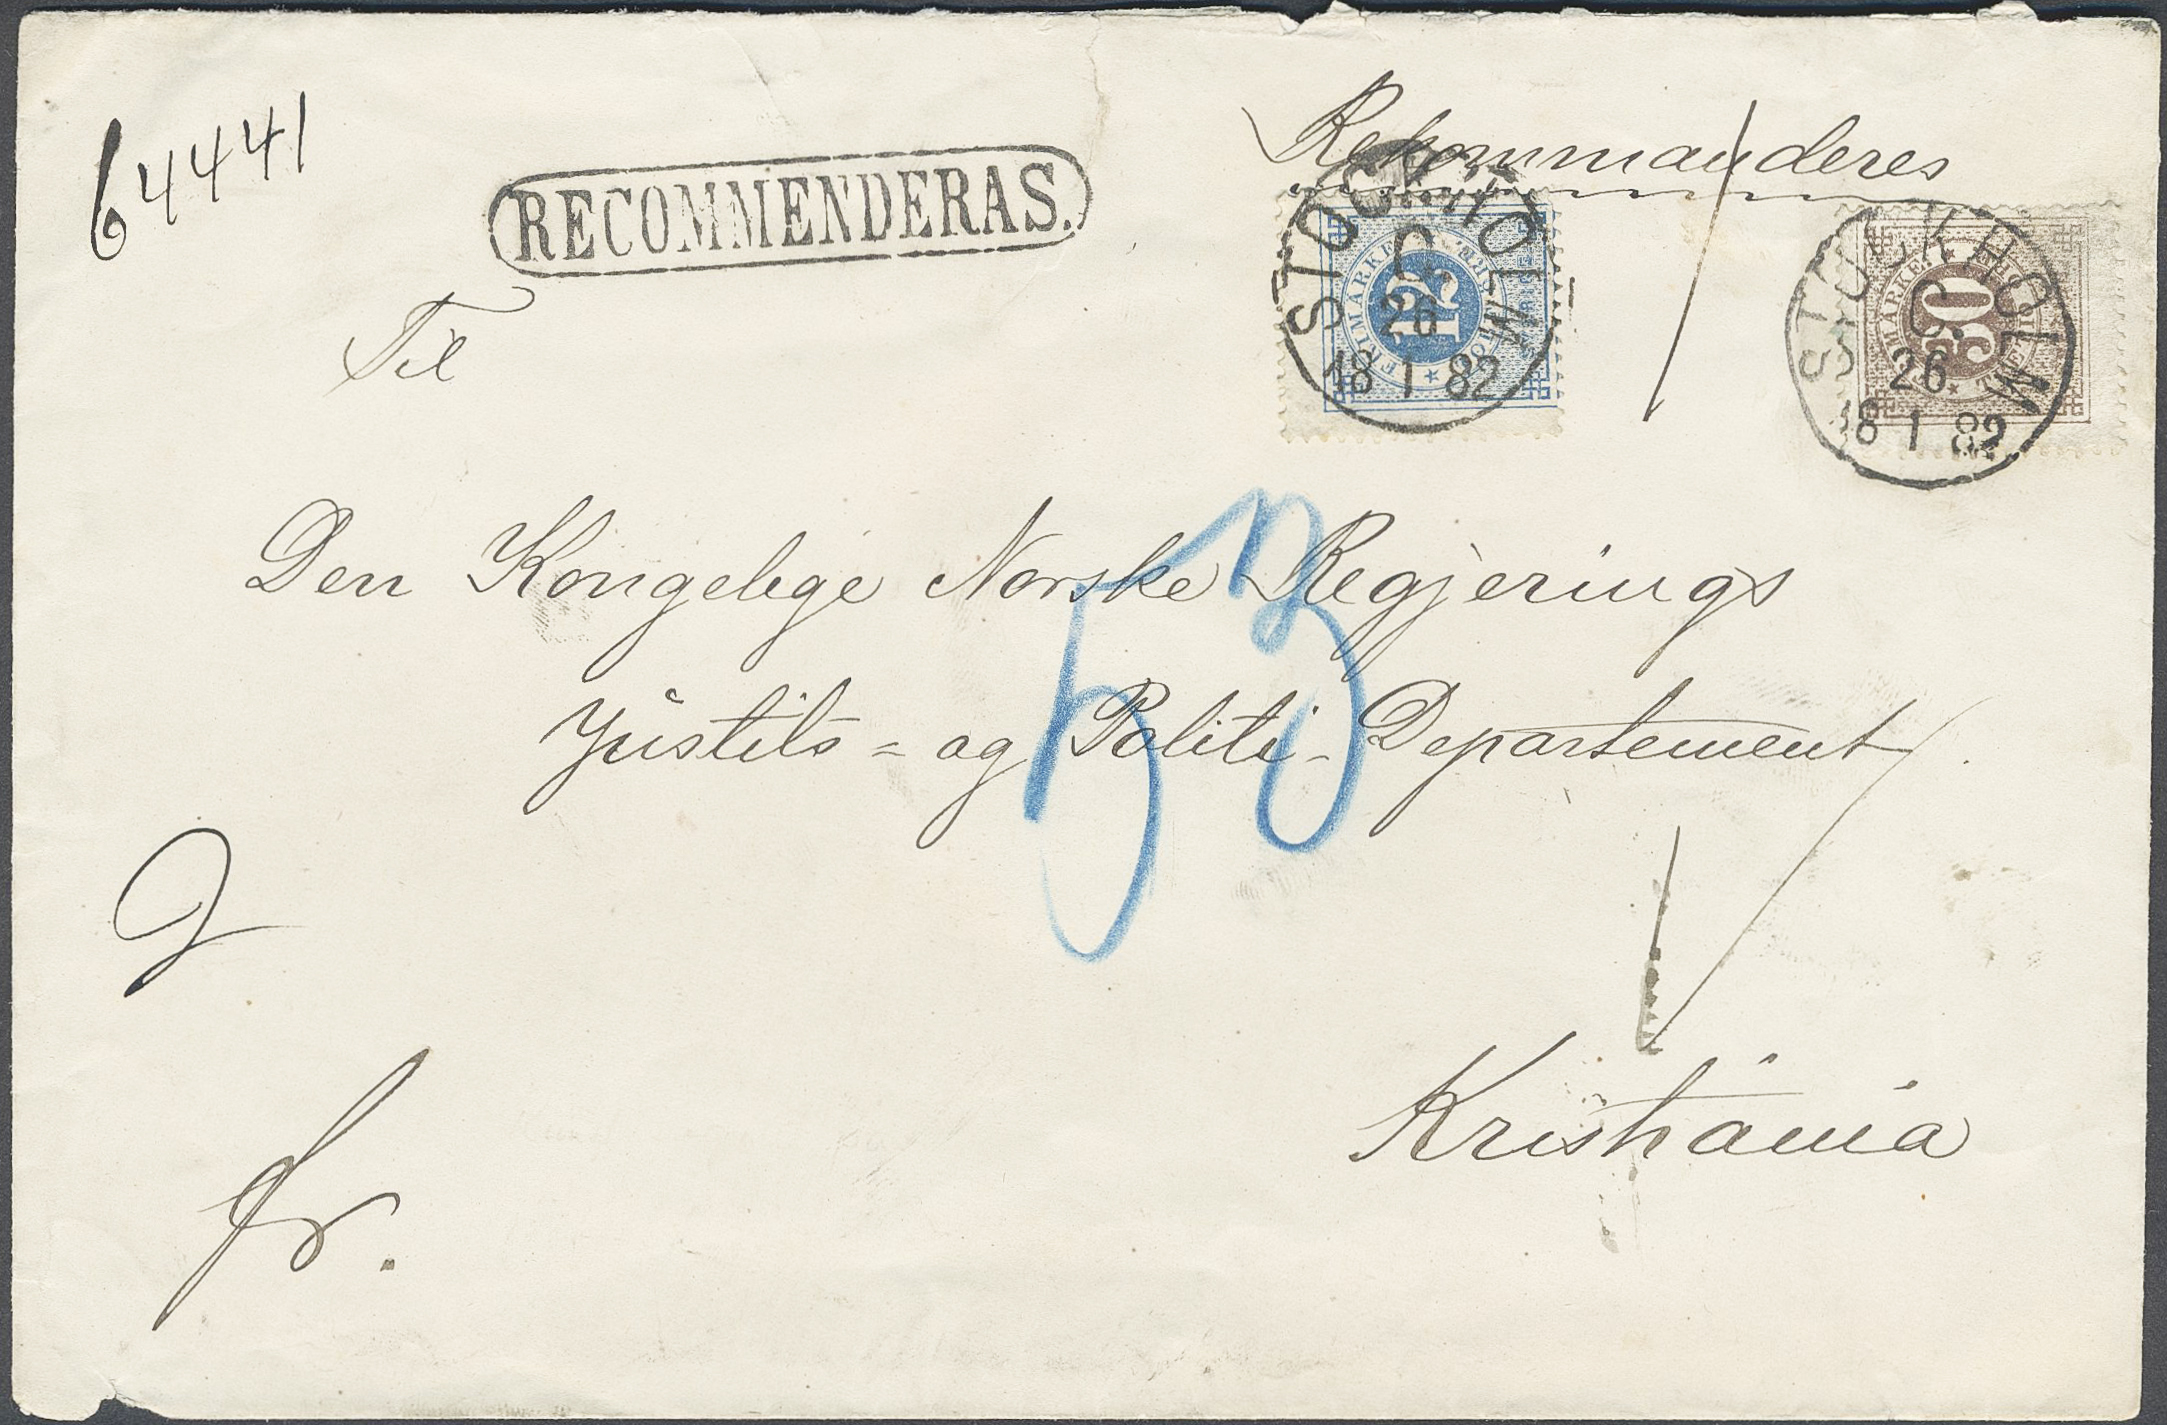 64441
RECOMMENDERAS.
Rekommanderes
STOCKHOLM
C
26
18 1 82
FRIMÄRKE
12
STOCKHOLM
C
26
18 1 82
FRIMÄRKE
30
TRETTIO
Til
Den Kongelige Norske Regjerings
Justits= og Politi-Departement
53
Kristiania
fr.